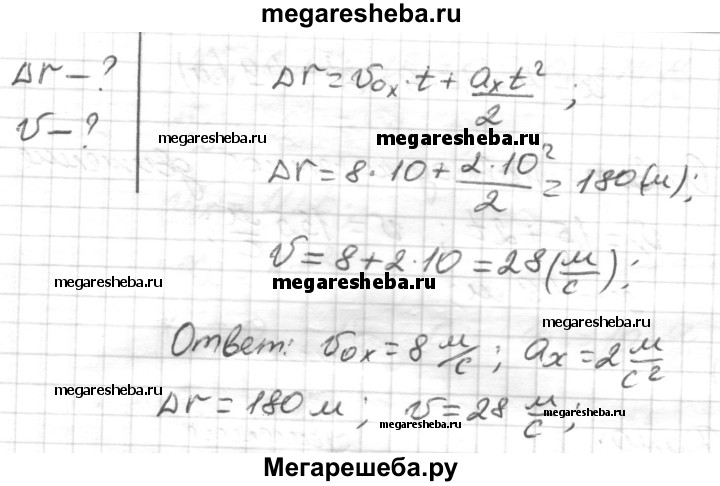 megaresheba.ru
Δr – ?
Δr = v₀ₓ · t + aₓt²/2 ;
v – ?
megaresheba.ru
megaresheba.ru
Δr = 8 · 10 + 2 · 10²/2 = 180 (м);
v = 8 + 2 · 10 = 28 (м/с);
megaresheba.ru
megaresheba.ru
megaresheba.ru
Ответ: v₀ₓ = 8 м/с ; aₓ = 2 м/с²
megaresheba.ru
Δr = 180 м ; v = 28 м/с ;
megaresheba.ru
megaresheba.ru
Мегарешеба.ру